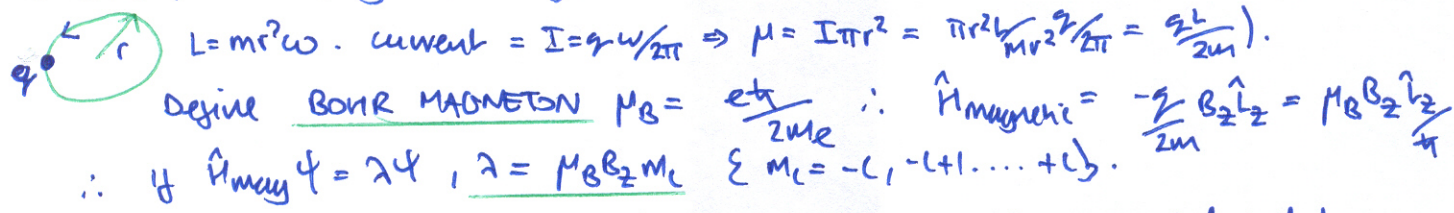 q r L = mr²ω. current = I = qω/2π ⇒ μ = Iπr² = πr²L/mr² q/2π = qL/2m ).
Define BOHR MAGNETON μ_B = eħ/2me ∴ Ĥmagnetic = -q/2m B_z L̂_z = μ_B B_z L̂_z/ħ
∴ if Ĥmag ψ = λψ, λ = μ_B B_z m_l { m_l = -l, -l+1.... +l }.